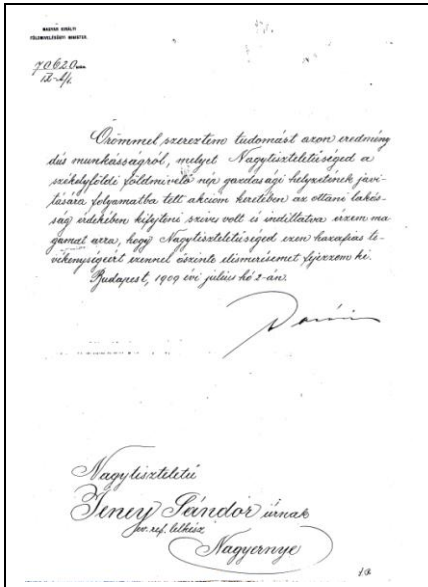 MAGYAR KIRÁLYI
FÖLDMIVELÉSÜGYI MINISTER.
70.620
Örömmel szereztem tudomást azon eredmény
dús munkásságról, melyet Nagytiszteletűséged a
székelyföldi földmivelő nép gazdasági helyzetének javi-
tására folyamatba tett akcium keretében az ottani lakós-
ság érdekében kifejteni szives volt és indíttatva érzem ma-
gamat arra, hogy Nagytiszteletűséged ezen hazafias te-
vékenységéért ezennel őszinte elismerésemet fejezzem ki.
Budapest, 1909 évi július hó 2-án.
Nagytiszteletű
Jeney Sándor úrnak
ev. ref. lelkész
Nagyernye